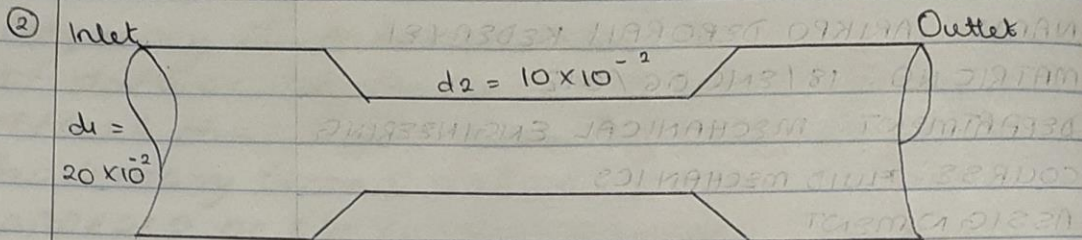 ② Inlet Outlet
d2 = 10 × 10⁻²
d1 =
20 × 10⁻²